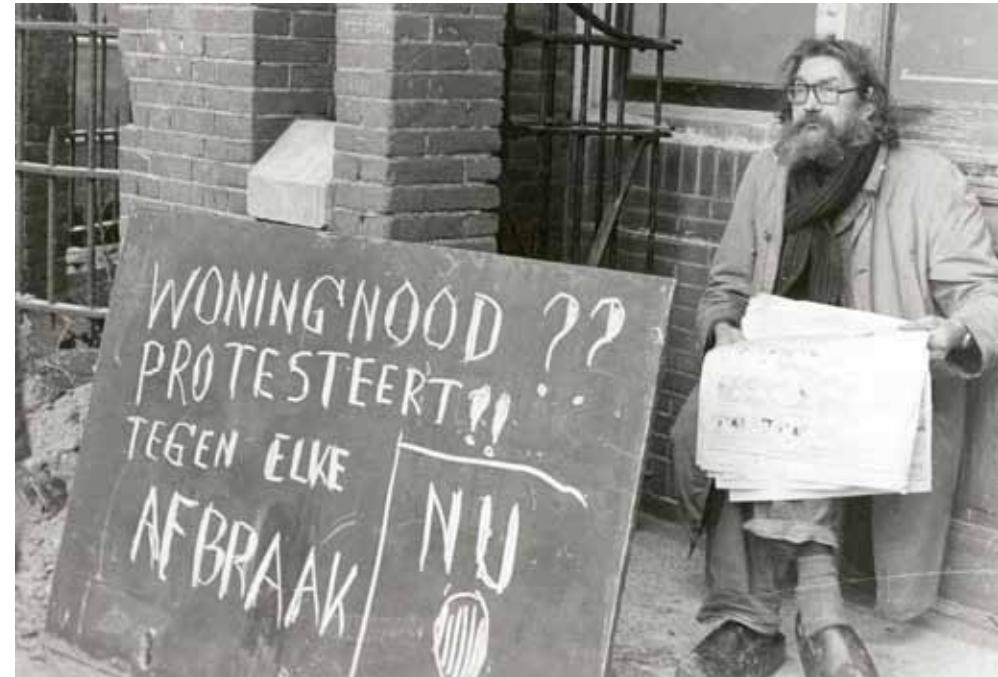 WONINGNOOD ??
PROTESTEERT!!
TEGEN ELKE
AFBRAAK
NU